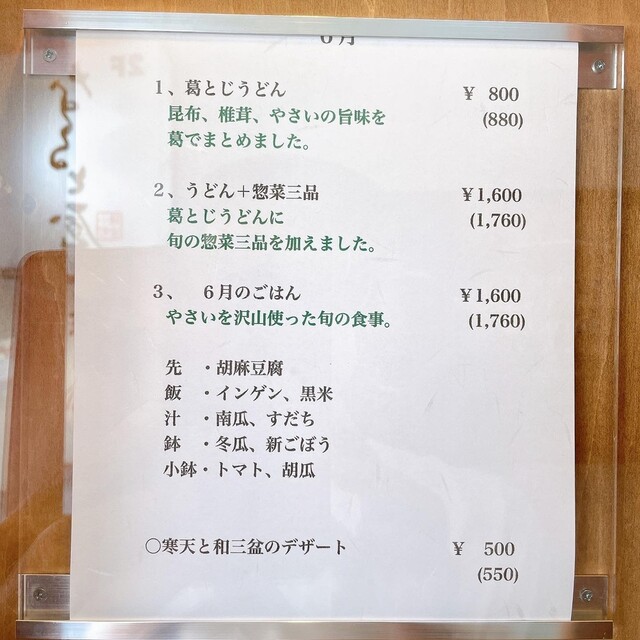 6月
1、葛とじうどん ¥ 800
昆布、椎茸、やさいの旨味を (880)
葛でまとめました。
2、うどん＋惣菜三品 ¥1,600
葛とじうどんに (1,760)
旬の惣菜三品を加えました。
3、 6月のごはん ¥1,600
やさいを沢山使った旬の食事。 (1,760)
先 ・胡麻豆腐
飯 ・インゲン、黒米
汁 ・南瓜、すだち
鉢 ・冬瓜、新ごぼう
小鉢・トマト、胡瓜
○寒天と和三盆のデザート ¥ 500
(550)
2F